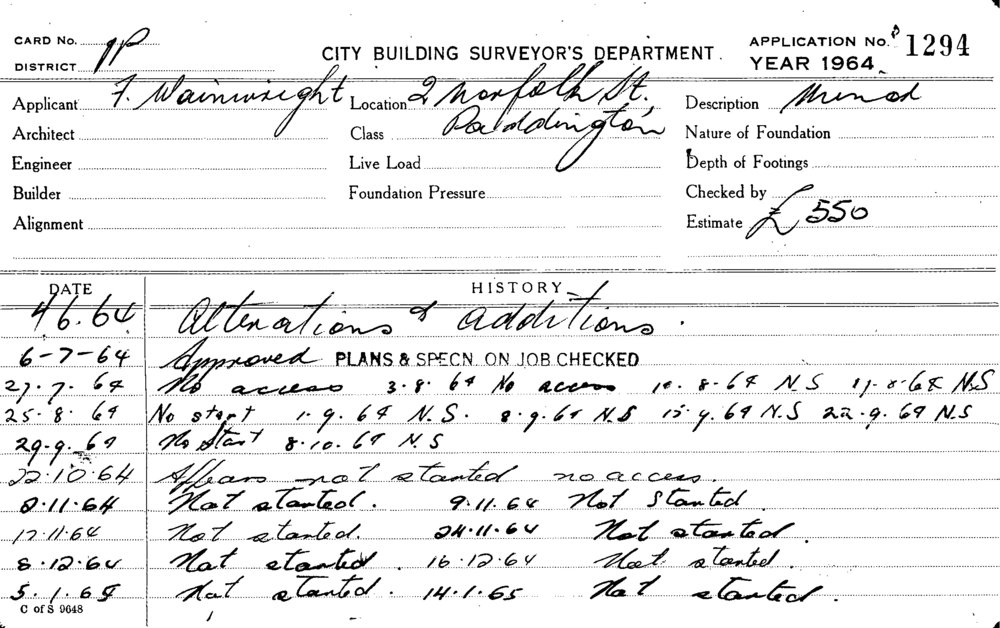 CARD No.
DISTRICT
CITY BUILDING SURVEYOR'S DEPARTMENT.
APPLICATION No. 1294
YEAR 1964
Applicant F. Wainwright Location 2 Norfolk St., Description
Architect Class Paddington Nature of Foundation
Engineer Live Load Depth of Footings
Builder Foundation Pressure Checked by
Alignment Estimate £550
DATE HISTORY
4.6.64 Alterations & additions.
6-7-64 Approved PLANS & SPECN. ON JOB CHECKED
27.7.64 No access 3.8.64 No access 10.8.64 N.S 17.8.64 N.S
25.8.64 No start 1.9.64 N.S. 8.9.64 N.S 15.9.64 N.S 22.9.64 N.S
29.9.64 No Start 8.10.64 N.S
22.10.64 Appears not started no access.
2.11.64 Not started. 9.11.64 Not Started
17.11.64 Not started. 24.11.64 Not started.
8.12.64 Not started. 16.12.64 Not started.
5.1.65 Not started. 14.1.65 Not started.
C of S 9648